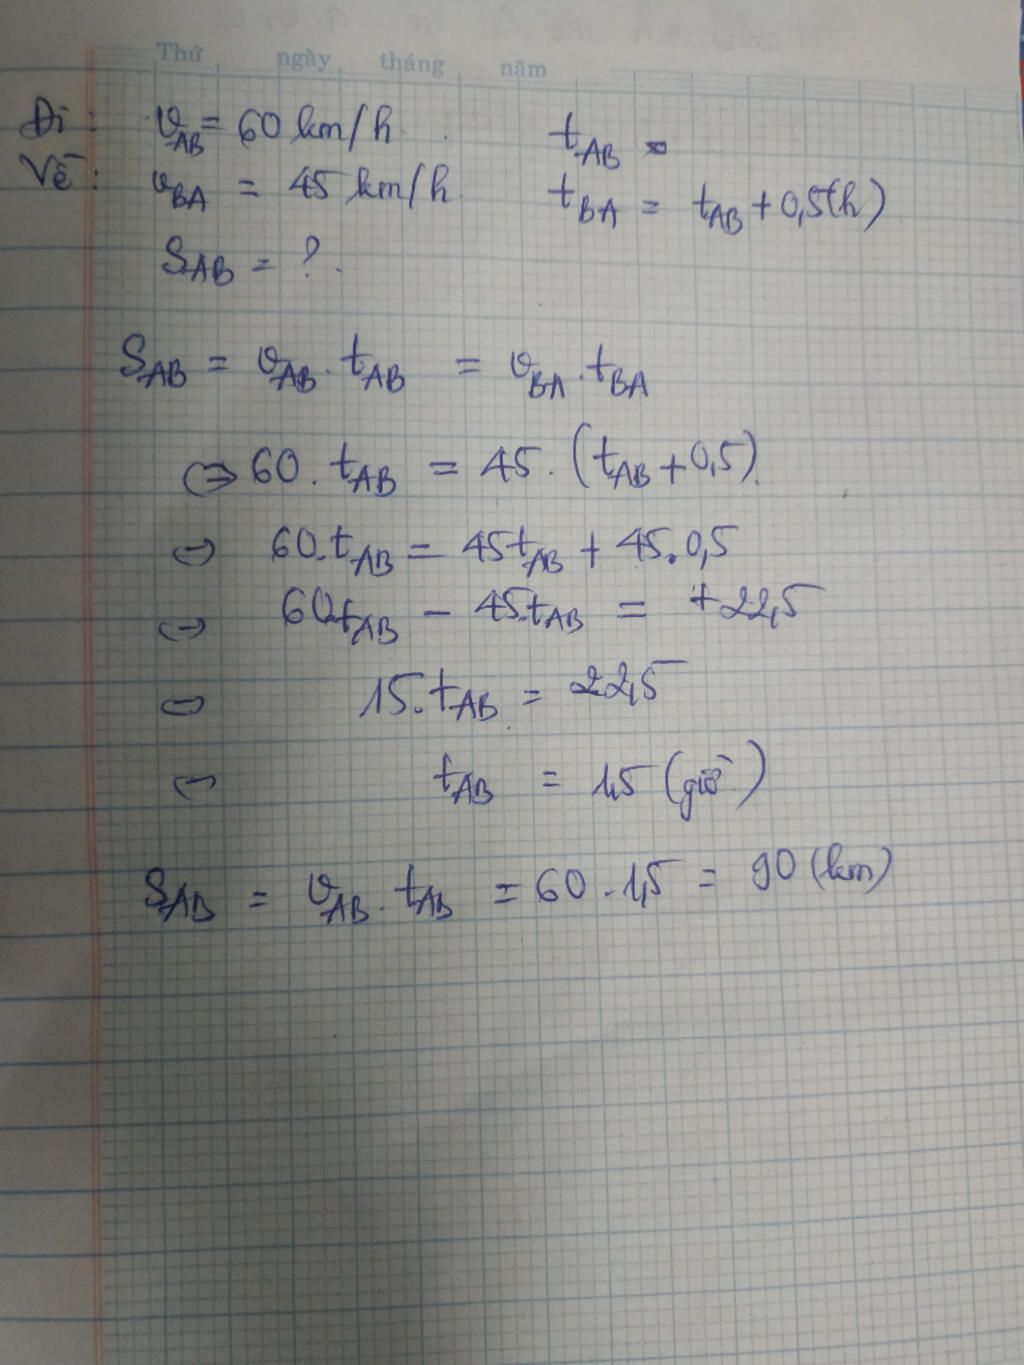 Thứ ngày tháng năm
Đi: v_AB = 60 km/h t_AB =
Về: v_BA = 45 km/h t_BA = t_AB + 0,5(h)
S_AB = ?
S_AB = v_AB . t_AB = v_BA . t_BA
⇔ 60 . t_AB = 45 . (t_AB + 0,5)
⇔ 60.t_AB = 45t_AB + 45.0,5
⇔ 60.t_AB - 45.t_AB = +22,5
⇔ 15.t_AB = 22,5
⇔ t_AB = 1,5 (giờ)
S_AB = v_AB . t_AB = 60 . 1,5 = 90 (km)